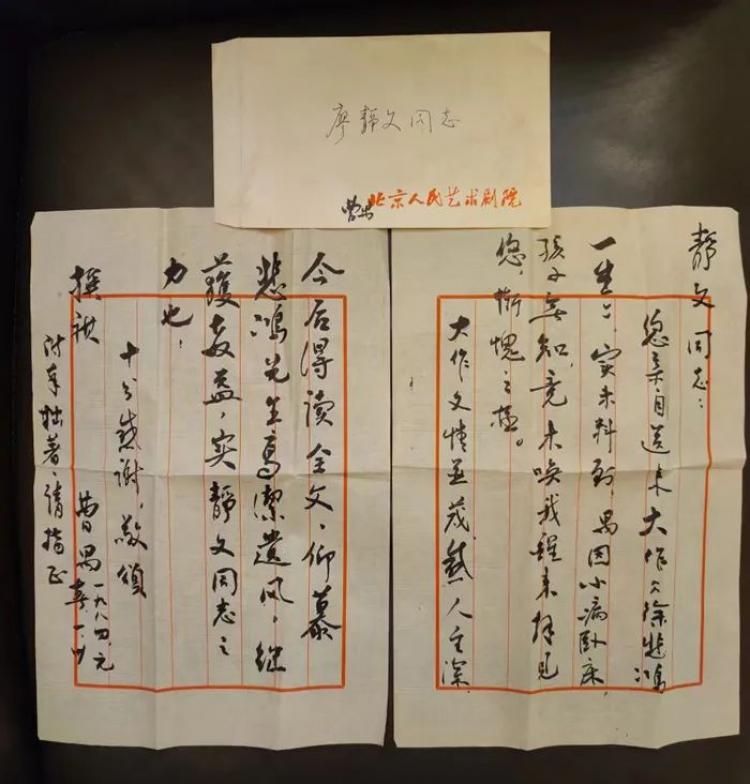 廖靜文同志
曹禺 北京人民艺术剧院
靜文同志：
您亲自送来大作《徐悲鸿
一生》，实未料到，禺因小病卧床，
孩子無知，竟未唤我醒来拜见
您，惭愧之极。
大作文情並茂，感人至深，
今后得读全文，仰慕
悲鸿先生高潔遺风，继
獲教益，实靜文同志之
力也！
十分感谢，敬颂
撰祺
曹禺
一九八四、元
附奉拙著，请指正